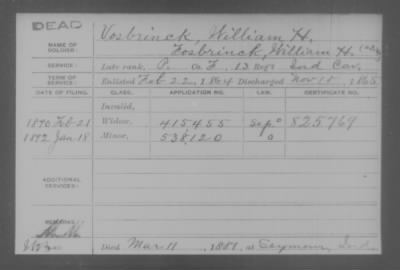 DEAD
Vosbrinck, William H.
NAME OF SOLDIER:
Fosbrinck, William H.
SERVICE: Late rank, P. Co. F, 13 Reg't Ind Cav.
TERM OF SERVICE: Enlisted Feb 22, 1864 Discharged Nov 18, 1865
DATE OF FILING. CLASS. APPLICATION NO. LAW. CERTIFICATE NO.
Invalid,
1890 Feb 21 Widow, 415,455 825769
1892 Jan 18 Minor, 538,120
ADDITIONAL SERVICES:
REMARKS:
Died Mar 11, 1881, at Seymour, Ind.